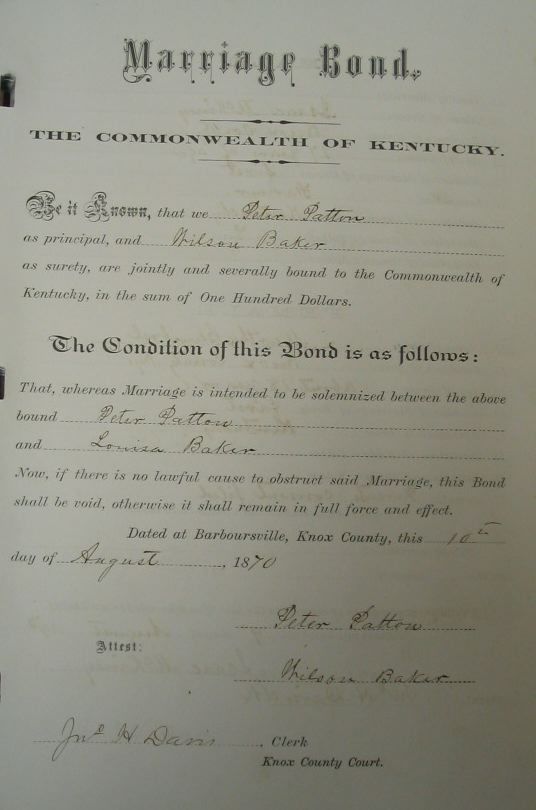 Marriage Bond,
THE COMMONWEALTH OF KENTUCKY.
Be it Known, that we Peter Patton
as principal, and Wilson Baker
as surety, are jointly and severally bound to the Commonwealth of
Kentucky, in the sum of One Hundred Dollars.
The Condition of this Bond is as follows:
That, whereas Marriage is intended to be solemnized between the above
bound Peter Patton
and Louisa Baker
Now, if there is no lawful cause to obstruct said Marriage, this Bond
shall be void, otherwise it shall remain in full force and effect.
Dated at Barboursville, Knox County, this 10th
day of August, 1870
Peter Patton
Attest:
Wilson Baker
Jno H Davis, Clerk
Knox County Court.